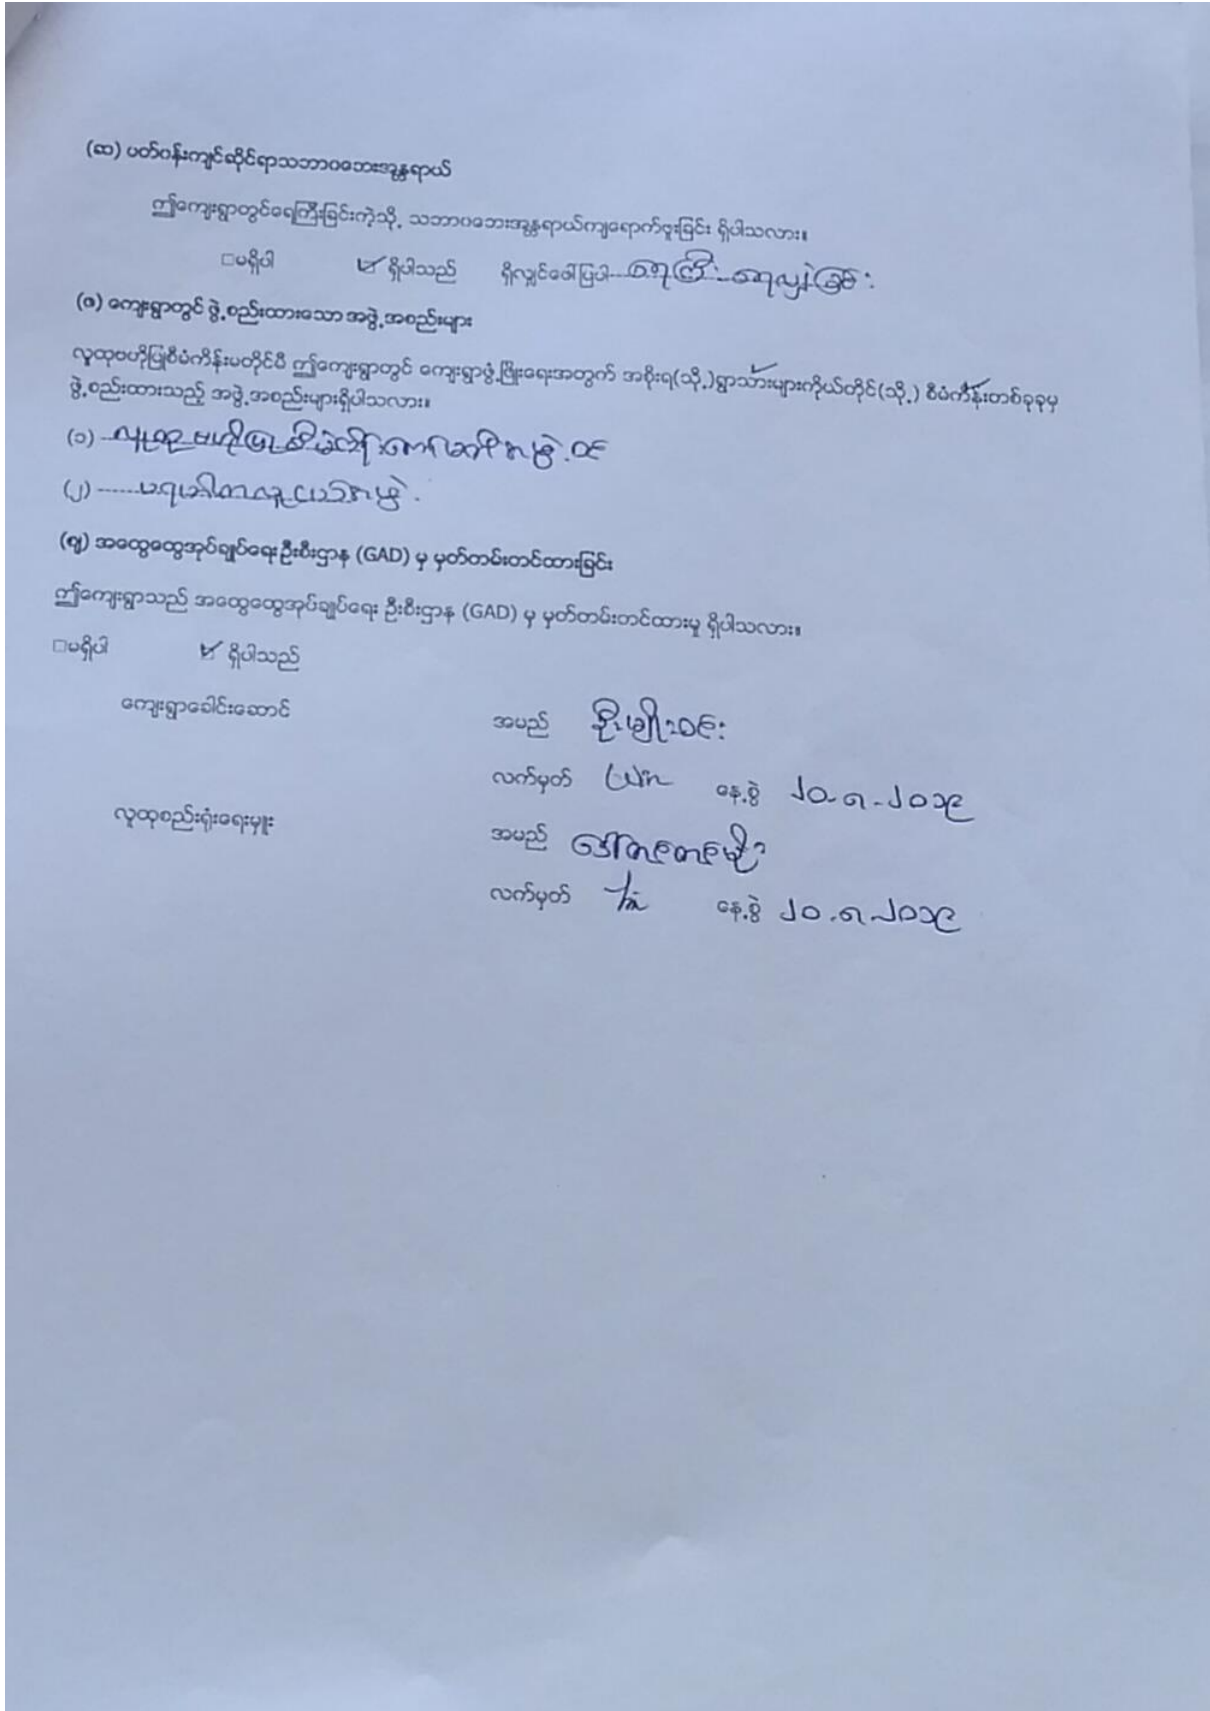 (ဆ) ပတ်ဝန်းကျင်ဆိုင်ရာသဘာဝဘေးအန္တရာယ်
ဤကျေးရွာတွင်ရေကြီးခြင်းကဲ့သို့ သဘာဝဘေးအန္တရာယ်ကျရောက်ဖူးခြင်း ရှိပါသလား။
□မရှိပါ ☑ ရှိပါသည် ရှိလျှင်ဖေါ်ပြပါ.....ရေကြီး ရေလျှံခြင်း
(ဇ) ကျေးရွာတွင် ဖွဲ့စည်းထားသော အဖွဲ့အစည်းများ
လူထုဗဟိုပြုစီမံကိန်းမတိုင်မီ ဤကျေးရွာတွင် ကျေးရွာဖွံ့ဖြိုးရေးအတွက် အစိုးရ(သို့)ရွာသားများကိုယ်တိုင်(သို့) စီမံကိန်းတစ်ခုခုမှ
ဖွဲ့စည်းထားသည့် အဖွဲ့အစည်းများရှိပါသလား။
(၁) လူထုဗဟိုပြုစီမံကိန်းကော်မတီအဖွဲ့ဝင်
(၂) ......ပရဟိတလူငယ်အဖွဲ့
(ဈ) အထွေထွေအုပ်ချုပ်ရေးဦးစီးဌာန (GAD) မှ မှတ်တမ်းတင်ထားခြင်း
ဤကျေးရွာသည် အထွေထွေအုပ်ချုပ်ရေး ဦးစီးဌာန (GAD) မှ မှတ်တမ်းတင်ထားမှု ရှိပါသလား။
□မရှိပါ ☑ ရှိပါသည်
ကျေးရွာခေါင်းဆောင် အမည် ဦးမျိုးဝင်း
လက်မှတ် Win နေ့စွဲ ၂၀.၈.၂၀၁၉
လူထုစည်းရုံးရေးမှူး အမည် ဒေါ်တင်တင်မိုး
လက်မှတ် နေ့စွဲ ၂၀.၈.၂၀၁၉